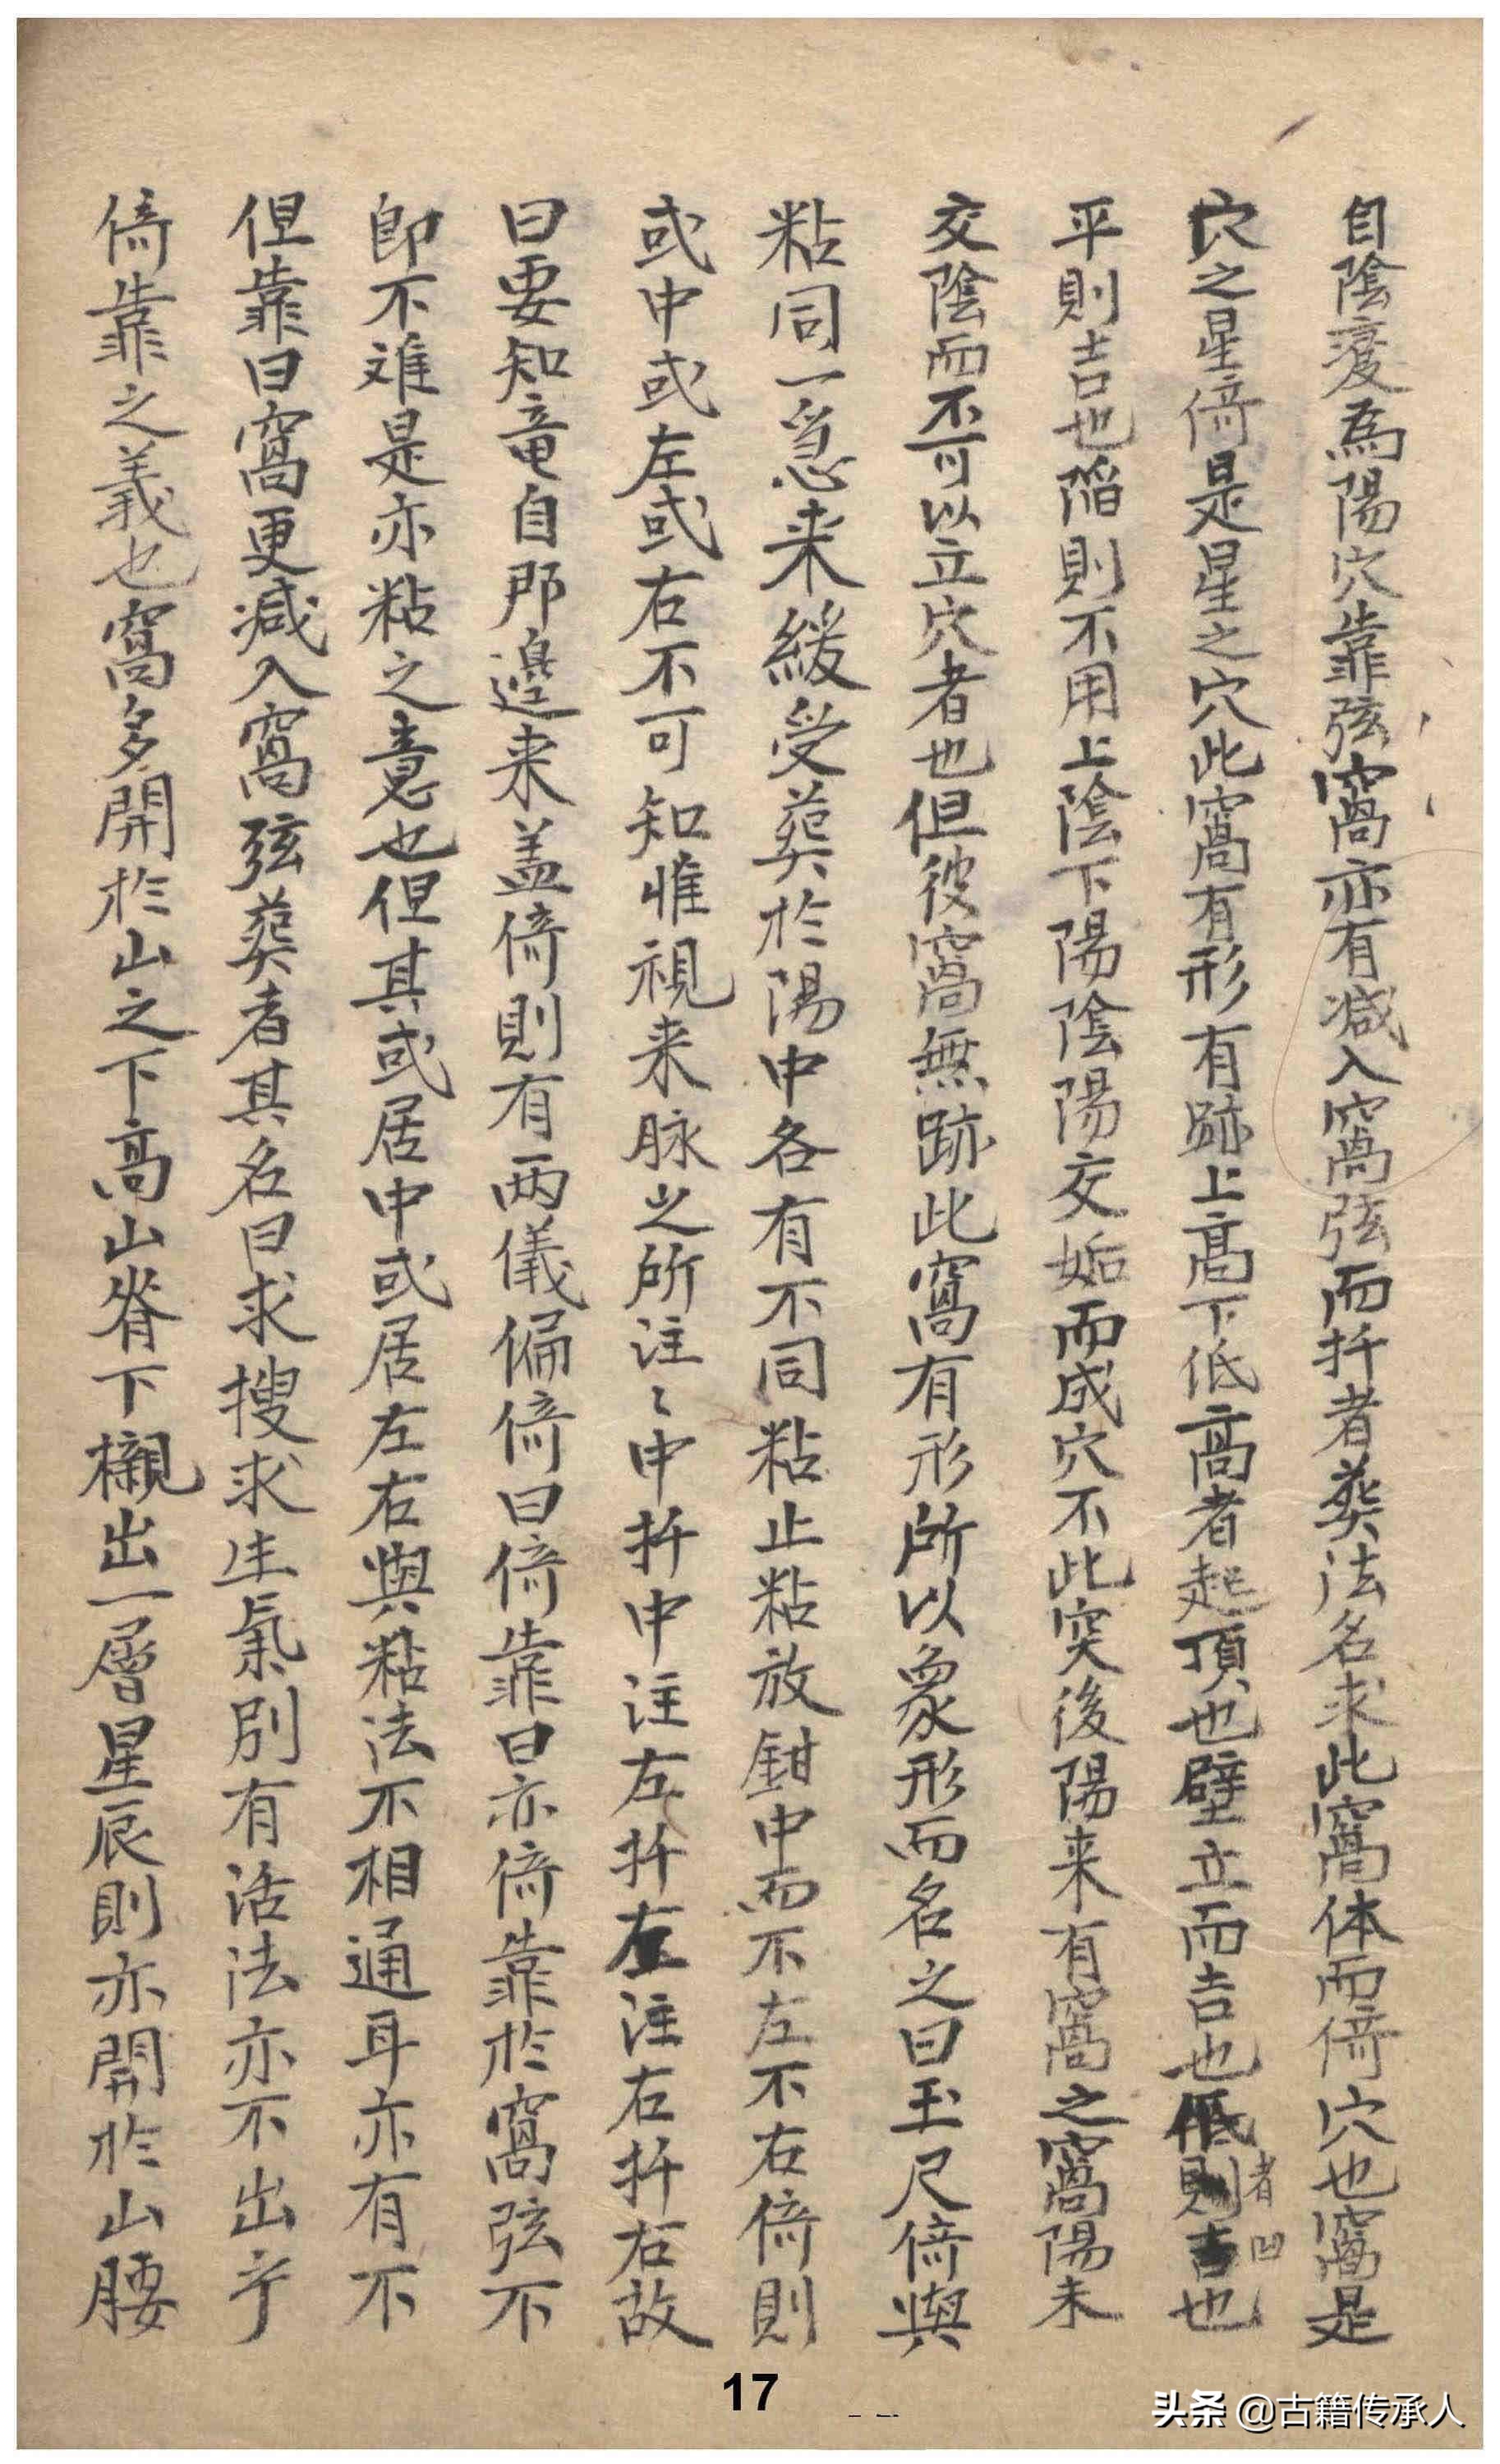 自陰変為陽穴靠弦窩亦有减入窩弦而扦者葵法名求此窩体而倚穴也窩是
穴之星倚是星之穴此窩有形有跡上高下低高者起頂也壁立而吉也低者凹也
平則吉也陷則不用上陰下陽陰陽交姤而成穴不此突後陽来有窩之窩陽未
交陰而不可以立穴者也但彼窩無跡此窩有形所以象形而名之曰玉尺倚與
粘同一急来緩受葵於陽中各有不同粘止粘放鉗中而不左不右倚則
或中或左或右不可知惟視来脉之所注〻中扦中注左扦左注右扦右故
曰要知竜自那邉来盖倚則有两儀偏倚曰倚靠曰亦倚靠於窩弦不
即不难是亦粘之意也但其或居中或居左右與粘法不相通耳亦有不
但靠曰窩更减入窩弦葵者其名曰求搜求生氣別有活法亦不出乎
倚靠之義也窩多開於山之下高山脊下襯出一層星辰則亦開於山腰
17
头条 @古籍传承人